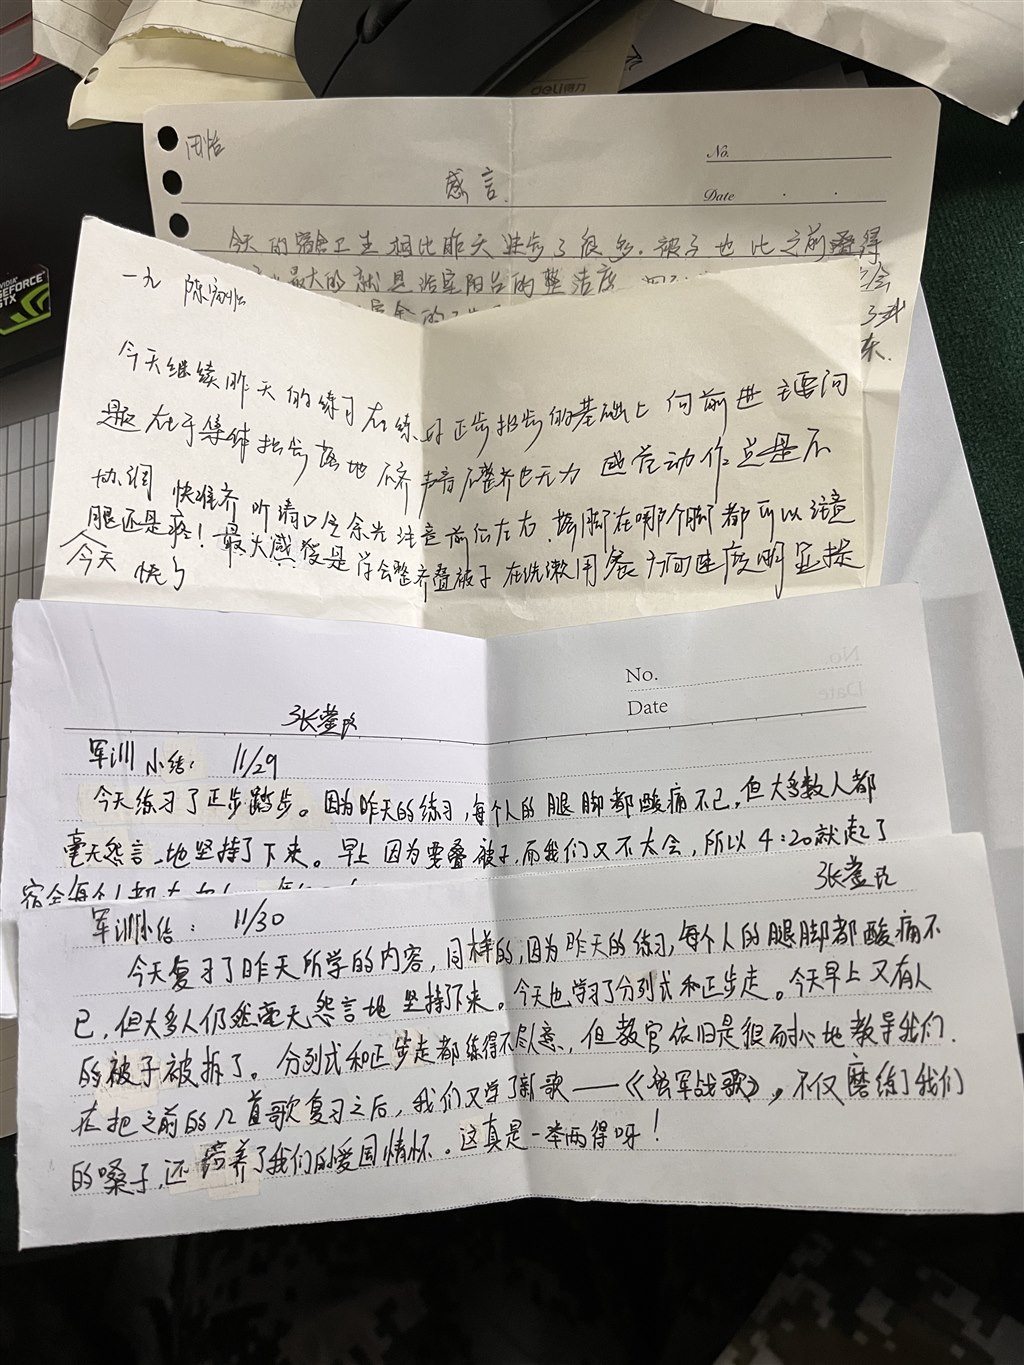 deli得力
No.
感言.
Date
今天的宿舍卫生相比昨天进步了很多.被子也比之前叠得
最大的就是浴室阳台的整洁度
NVIDIA
GEFORCE
GTX
一九 陈
今天继续昨天的练习在练好正步抬步的基础上向前进 主要问
题在于集体抬步落地不齐声音不整齐也无力 感觉动作总是不
协调 快准齐 听清口令余光注意前后左右.踢脚在哪个脚都可以注意
腿还是疼!最大感receives是学会整齐叠被子 在洗漱用餐方面速度明显提
今天 快了
No.
Date
张
军训小结: 11/29
今天练习了正步踏步。因为昨天的练习,每个人的腿脚都酸痛不已,但大多数人都
毫无怨言地坚持了下来。早上因为要叠被子,而我们又不太会,所以4:20就起了
宿舍每个人都
张
军训小结: 11/30
今天复习了昨天所学的内容,同样的,因为昨天的练习,每个人的腿脚都酸痛不
已,但大多人仍然毫无怨言地坚持了下来。今天也学习了分列式和正步走。今天早上又有人
的被子被拆了。分列式和正步走都练得不尽人意,但教官依旧是很耐心地教导我们.
在把之前的几首歌复习之后,我们又学了新歌——《强军战歌》,不仅磨练了我们
的嗓子,还培养了我们的爱国情怀。这真是一举两得呀!